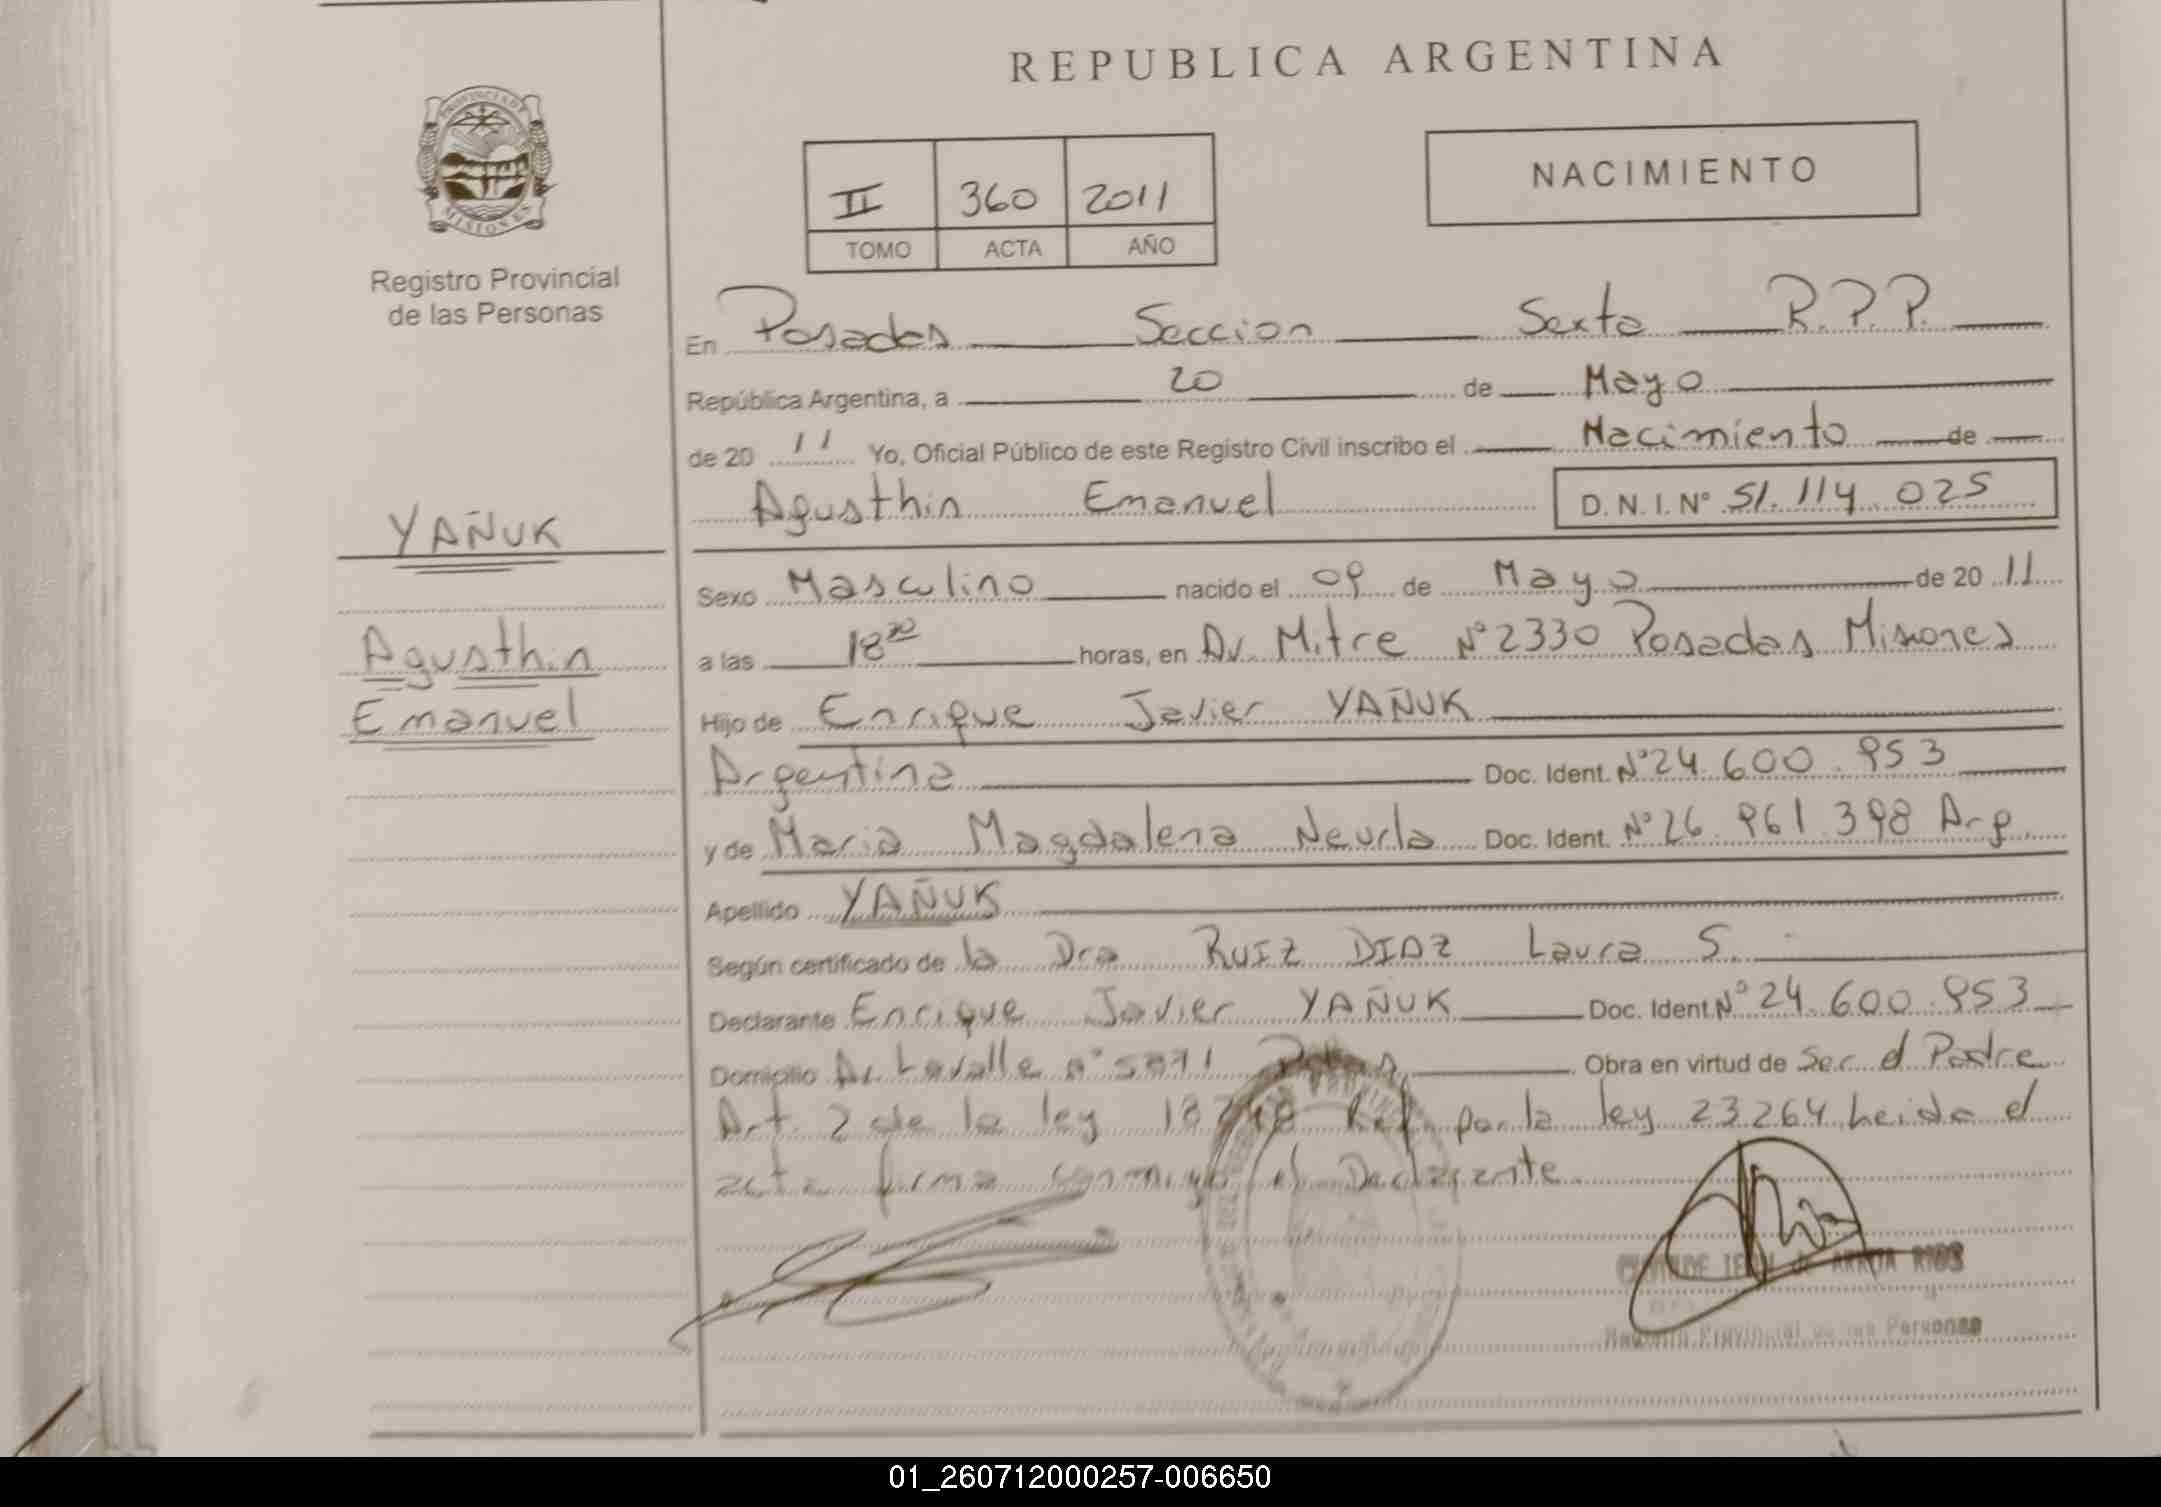 REPUBLICA ARGENTINA
PROVINCIA DE
MISIONES
Registro Provincial
de las Personas
II 360 2011
TOMO ACTA AÑO
NACIMIENTO
En Posadas Seccion Sexta R.P.P.
República Argentina, a 20 de Mayo
de 20 11 Yo, Oficial Público de este Registro Civil inscribo el Nacimiento de
Agusthin Emanuel D.N.I. Nº 51.114.025
YAÑUK
Agusthin
Emanuel
Sexo Masculino nacido el 09 de Mayo de 20 11
a las 18 horas, en Av. Mitre Nº 2330 Posadas Misiones
Hijo de Enrique Javier YAÑUK
Argentina Doc. Ident. Nº 24.600.953
y de Maria Magdalena Doc. Ident. Nº 26.961.398 Arg.
Apellido YAÑUK
Según certificado de la Dra RUIZ DIAZ Laura S.
Declarante Enrique Javier YAÑUK Doc. Ident Nº 24.600.953
Domicilio Av. Lavalle nº Obra en virtud de Ser el Padre
Art. 2 de la ley 18248 por la ley 23.264 Leida el
acta firma conmigo el Declarante.
de ARRUA RIOS
Registro Provincial de las Personas
01_260712000257-006650